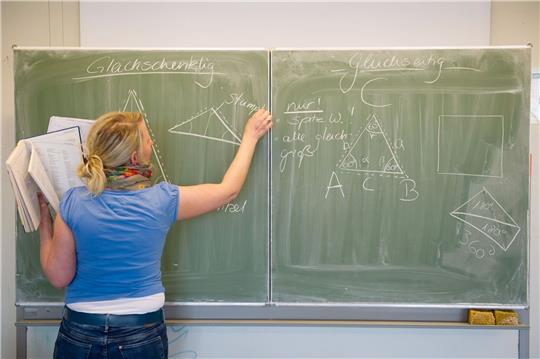 Gleichschenklig
Stumpf
tzel
Gleichseitig
nur!
spitze W.!
- alle gleich
groß
C
60°
b
a
a
60°
60°
A
C
B
180°
180°
360°